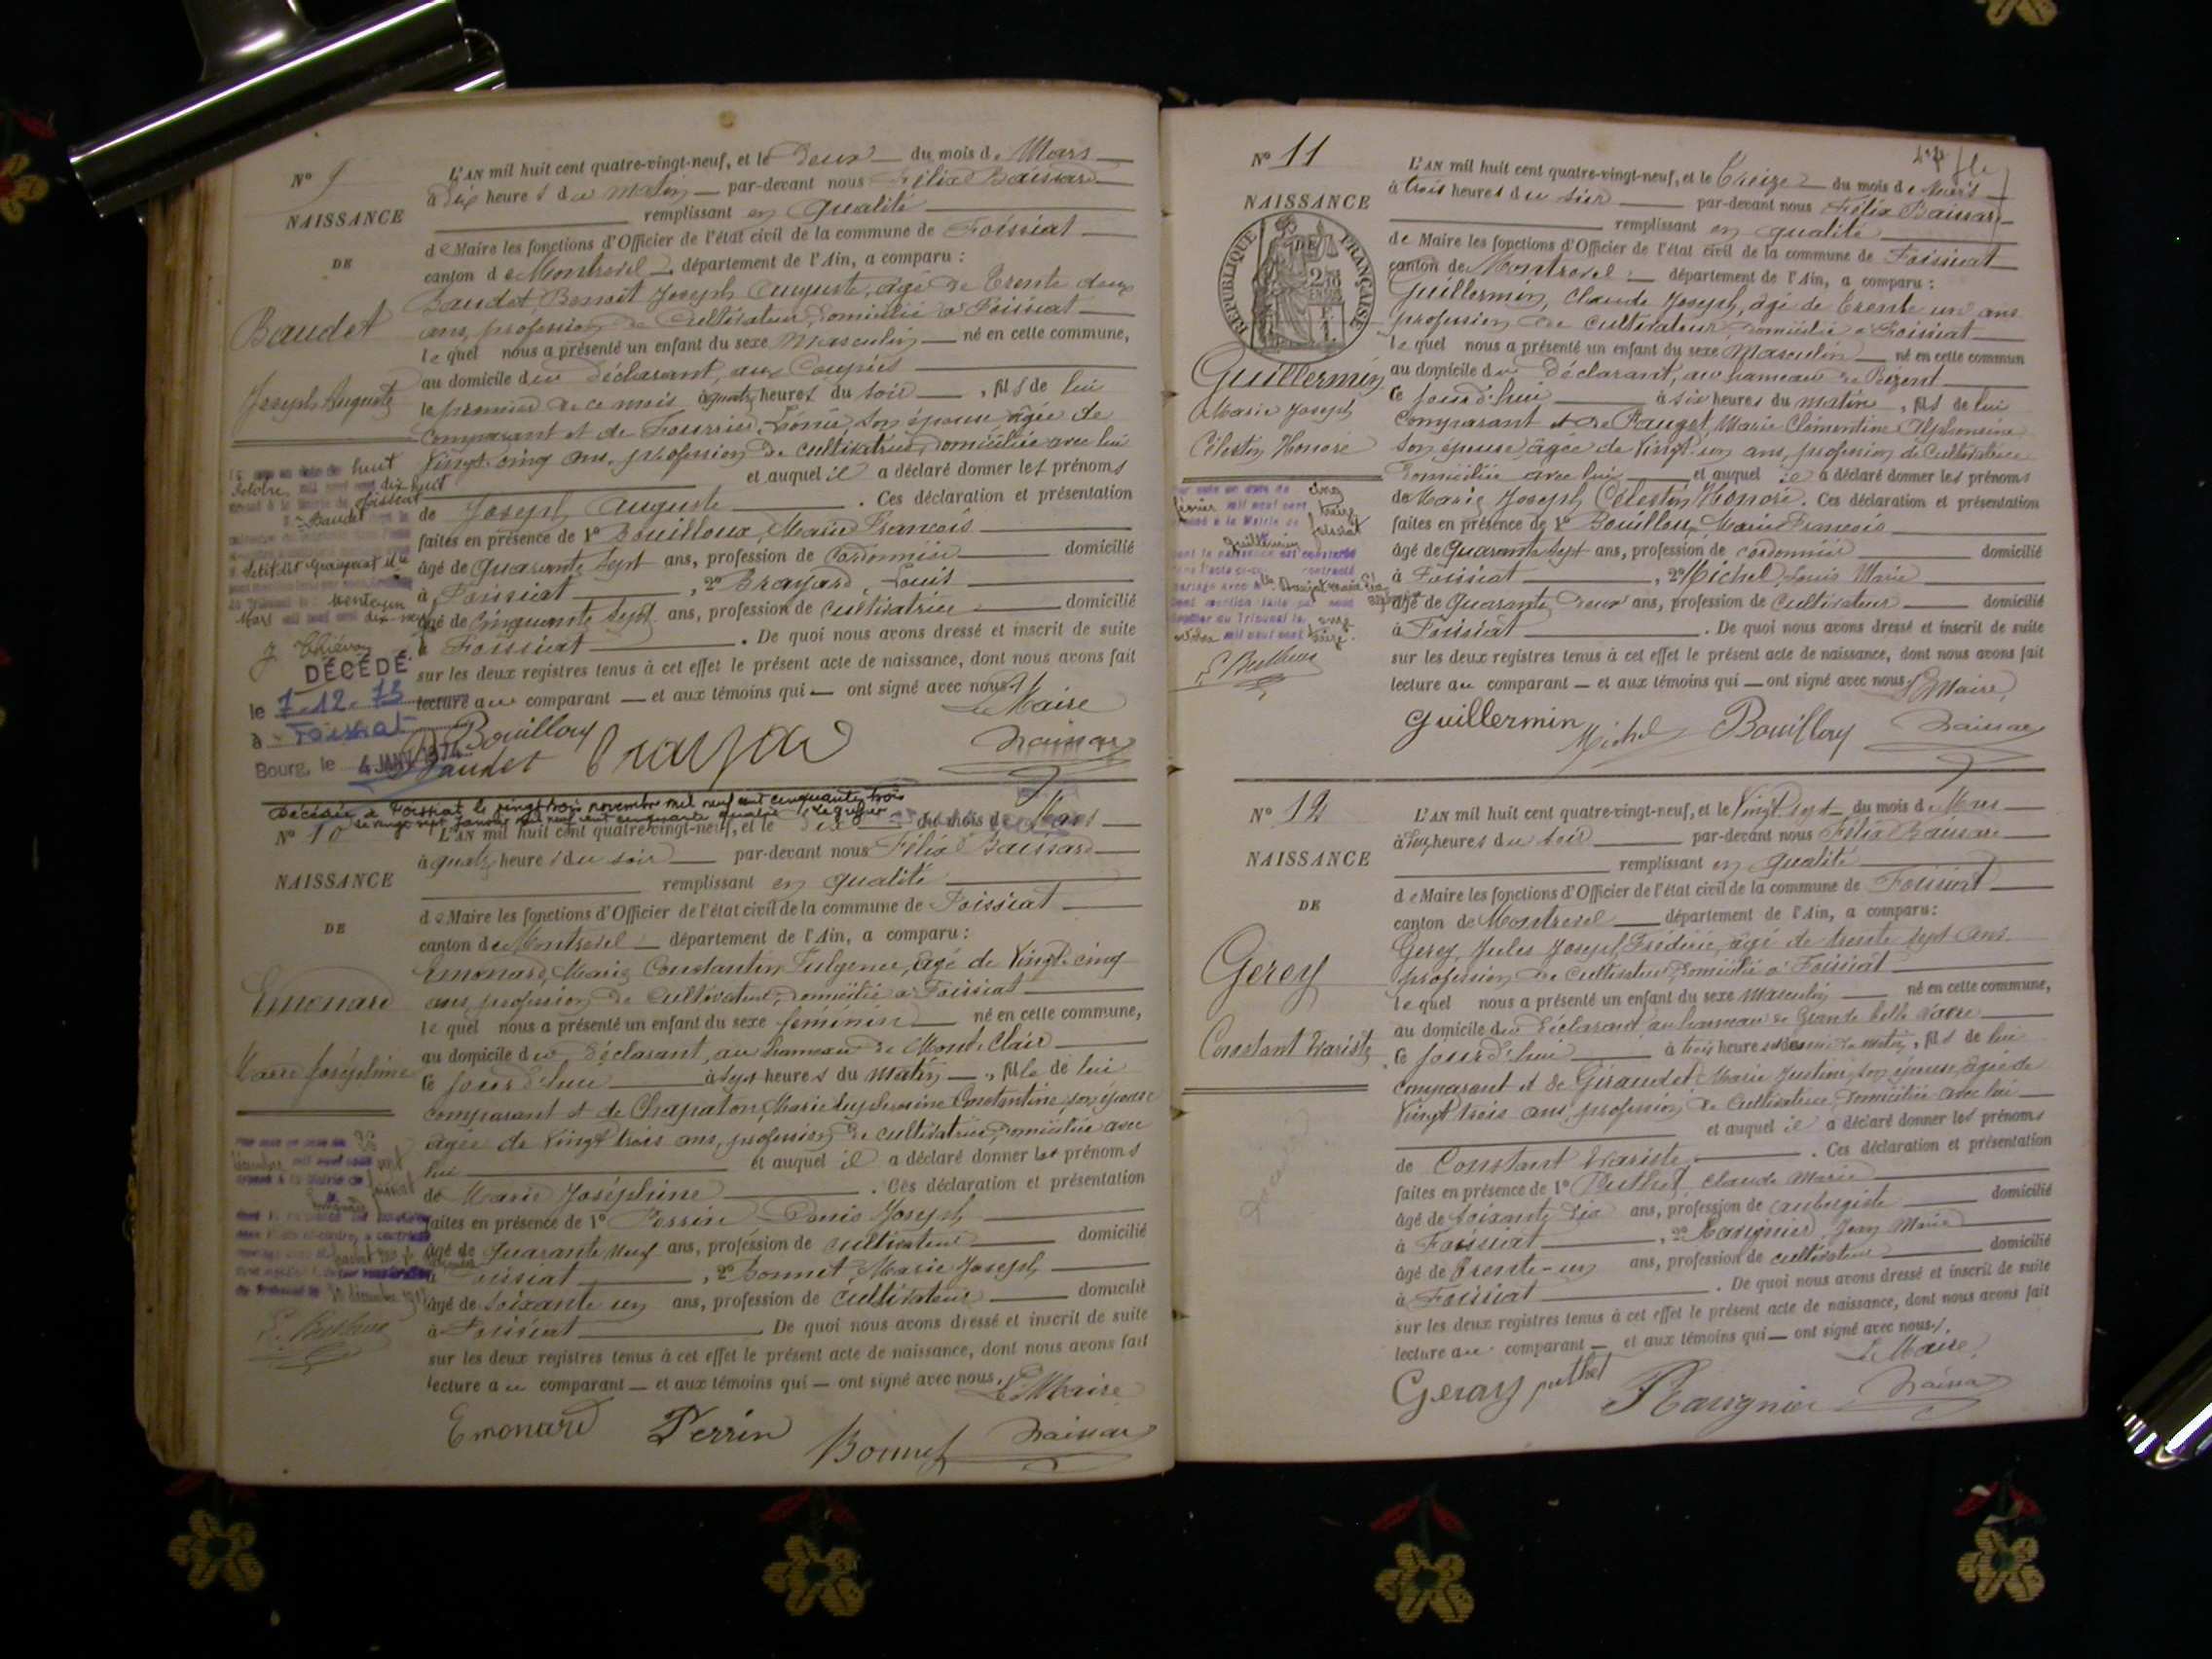 N° 9
NAISSANCE
DE
Baudet
Joseph Auguste
L'AN mil huit cent quatre-vingt-neuf, et le Deux du mois de Mars
à dix heures du matin par-devant nous Félix
remplissant en qualité
de Maire les fonctions d'Officier de l'état civil de la commune de Foissiat
canton de Montrevel département de l'Ain, a comparu :
Baudet, Benoit Joseph Auguste, âgé de trente deux
ans, profession de Cultivateur, domicilié à Foissiat
lequel nous a présenté un enfant du sexe Masculin né en cette commune,
au domicile du déclarant, aux
le premier de ce mois à quatre heures du soir, fils de lui
comparant et de son épouse, âgée de
Vingt-cinq ans, profession de cultivatrice, domiciliée avec lui
et auquel il a déclaré donner les prénoms
de Joseph Auguste. Ces déclaration et présentation
faites en présence de 1° Bouilloux, Marie François
âgé de quarante sept ans, profession de Cordonnier domicilié
à Foissiat, 2° Louis
âgé de Cinquante sept ans, profession de domicilié
à Foissiat. De quoi nous avons dressé et inscrit de suite
sur les deux registres tenus à cet effet le présent acte de naissance, dont nous avons fait
lecture au comparant — et aux témoins qui — ont signé avec nous.
Le Maire
Bouilloux
Baudet
huit
octobre
dix huit
Foissiat
Baudet
DÉCÉDÉ
le 7.12.73
à Foissiat
Bourg, le 4 JANV 1974
Décédée à Foissiat le vingt trois novembre mil neuf cent cinquante trois
le vingt sept janvier mil neuf cent cinquante quatre Le greffier
N° 10
NAISSANCE
DE
Emonard
Marie Joséphine
L'AN mil huit cent quatre-vingt-neuf, et le dix du mois de Mars
à quatre heures du soir par-devant nous Félix
remplissant en qualité
de Maire les fonctions d'Officier de l'état civil de la commune de Foissiat
canton de Montrevel département de l'Ain, a comparu :
Emonard, Marie Constantin Fulgence, âgé de Vingt-cinq
ans, profession de Cultivateur, domicilié à Foissiat
lequel nous a présenté un enfant du sexe féminin né en cette commune,
au domicile du déclarant, au hameau de Mont-Clair
ce jourd'hui à sept heures du matin, fille de lui
comparant et de Chapaton, Marie Constantine, son épouse
âgée de Vingt trois ans, profession de cultivatrice, domiciliée avec
lui et auquel il a déclaré donner les prénoms
de Marie Joséphine. Ces déclaration et présentation
faites en présence de 1° Perrin Denis Joseph
âgé de quarante neuf ans, profession de cultivateur domicilié
à Foissiat, 2° Bonnet, Marie Joseph
âgé de soixante un ans, profession de cultivateur domicilié
à Foissiat. De quoi nous avons dressé et inscrit de suite
sur les deux registres tenus à cet effet le présent acte de naissance, dont nous avons fait
lecture au comparant — et aux témoins qui — ont signé avec nous.
Le Maire
Emonard Perrin
Bonnet
N° 11
NAISSANCE
RÉPUBLIQUE FRANÇAISE
Guillermin
Marie Joseph
Célestin Honoré
L'AN mil huit cent quatre-vingt-neuf, et le Treize du mois de Mars
à trois heures du soir par-devant nous Félix
remplissant en qualité
de Maire les fonctions d'Officier de l'état civil de la commune de Foissiat
canton de Montrevel département de l'Ain, a comparu :
Guillermin, Claude Joseph, âgé de trente un ans
profession de cultivateur, domicilié à Foissiat
lequel nous a présenté un enfant du sexe Masculin né en cette commun
au domicile du déclarant, au hameau de
ce jourd'hui à six heures du matin, fils de lui
comparant et de Marie Clémentine Alphonsine
son épouse, âgée de Vingt un ans, profession de cultivatrice
domiciliée avec lui et auquel il a déclaré donner les prénoms
de Marie Joseph Célestin Honoré. Ces déclaration et présentation
faites en présence de 1° Bouilloux, Marie François
âgé de quarante sept ans, profession de cordonnier domicilié
à Foissiat, 2° Michel, Louis Marie
âgé de quarante deux ans, profession de cultivateur domicilié
à Foissiat. De quoi nous avons dressé et inscrit de suite
sur les deux registres tenus à cet effet le présent acte de naissance, dont nous avons fait
lecture au comparant — et aux témoins qui — ont signé avec nous.
Le Maire,
guillermin Michel Bouilloux
cinq
février mil neuf cent treize
Mairie de Foissiat
Guillermin
N° 12
NAISSANCE
DE
Gerey
Constant Evariste
L'AN mil huit cent quatre-vingt-neuf, et le Vingt sept du mois de Mars
heures du soir par-devant nous Félix
remplissant en qualité
de Maire les fonctions d'Officier de l'état civil de la commune de Foissiat
canton de Montrevel département de l'Ain, a comparu :
Gerey, Jules Joseph Frédéric, âgé de trente sept ans
profession de cultivateur, domicilié à Foissiat
lequel nous a présenté un enfant du sexe masculin né en cette commune,
au domicile du déclarant au hameau de Grande belle
ce jourd'hui à trois heures du matin, fils de lui
comparant et de Giraudet Marie Justine, son épouse, âgée de
Vingt trois ans, profession de Cultivatrice, domiciliée avec lui
et auquel il a déclaré donner les prénoms
de Constant Evariste. Ces déclaration et présentation
faites en présence de 1° Puthet, Claude Marie
âgé de soixante dix ans, profession de aubergiste domicilié
à Foissiat, 2° Jean Marie
âgé de trente-un ans, profession de cultivateur domicilié
à Foissiat. De quoi nous avons dressé et inscrit de suite
sur les deux registres tenus à cet effet le présent acte de naissance, dont nous avons fait
lecture au comparant — et aux témoins qui — ont signé avec nous.
Le Maire,
Geray puthet